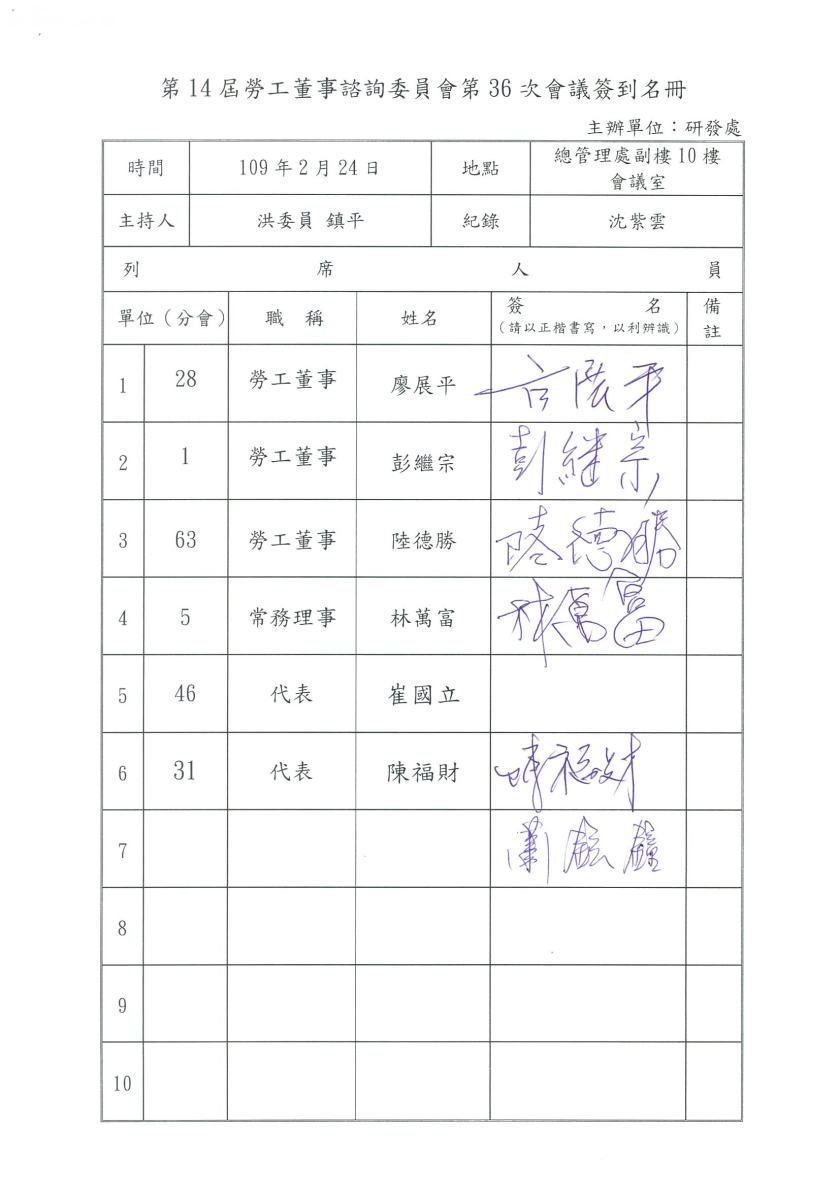 第14屆勞工董事諮詢委員會第36次會議簽到名冊
主辦單位：研發處
時間 109年2月24日 地點 總管理處副樓10樓
會議室
主持人 洪委員 鎮平 紀錄 沈紫雲
列 席 人 員
單位（分會） 職 稱 姓名 簽 名 備註
（請以正楷書寫，以利辨識）
1 28 勞工董事 廖展平 廖展平
2 1 勞工董事 彭繼宗 彭繼宗
3 63 勞工董事 陸德勝 陸德勝
4 5 常務理事 林萬富 林萬富
5 46 代表 崔國立
6 31 代表 陳福財 陳福財
7
8
9
10